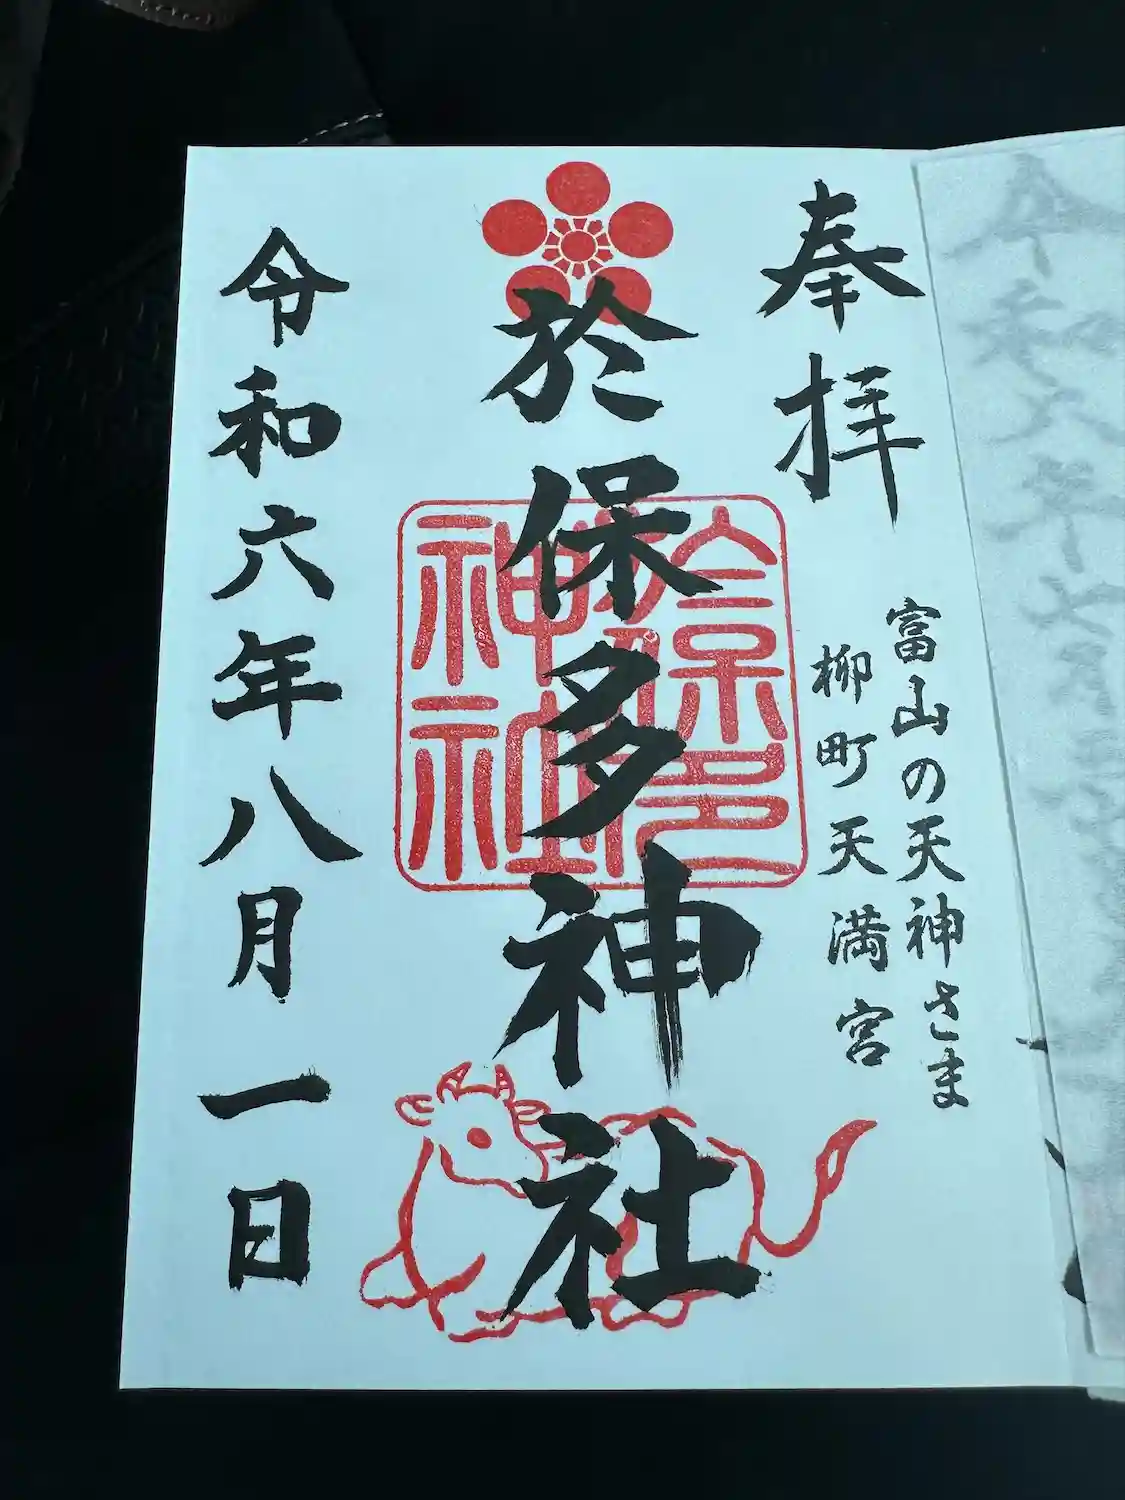 奉拝
富山の天神さま
柳町天満宮
於保多神社
於保多神社
令和六年八月一日